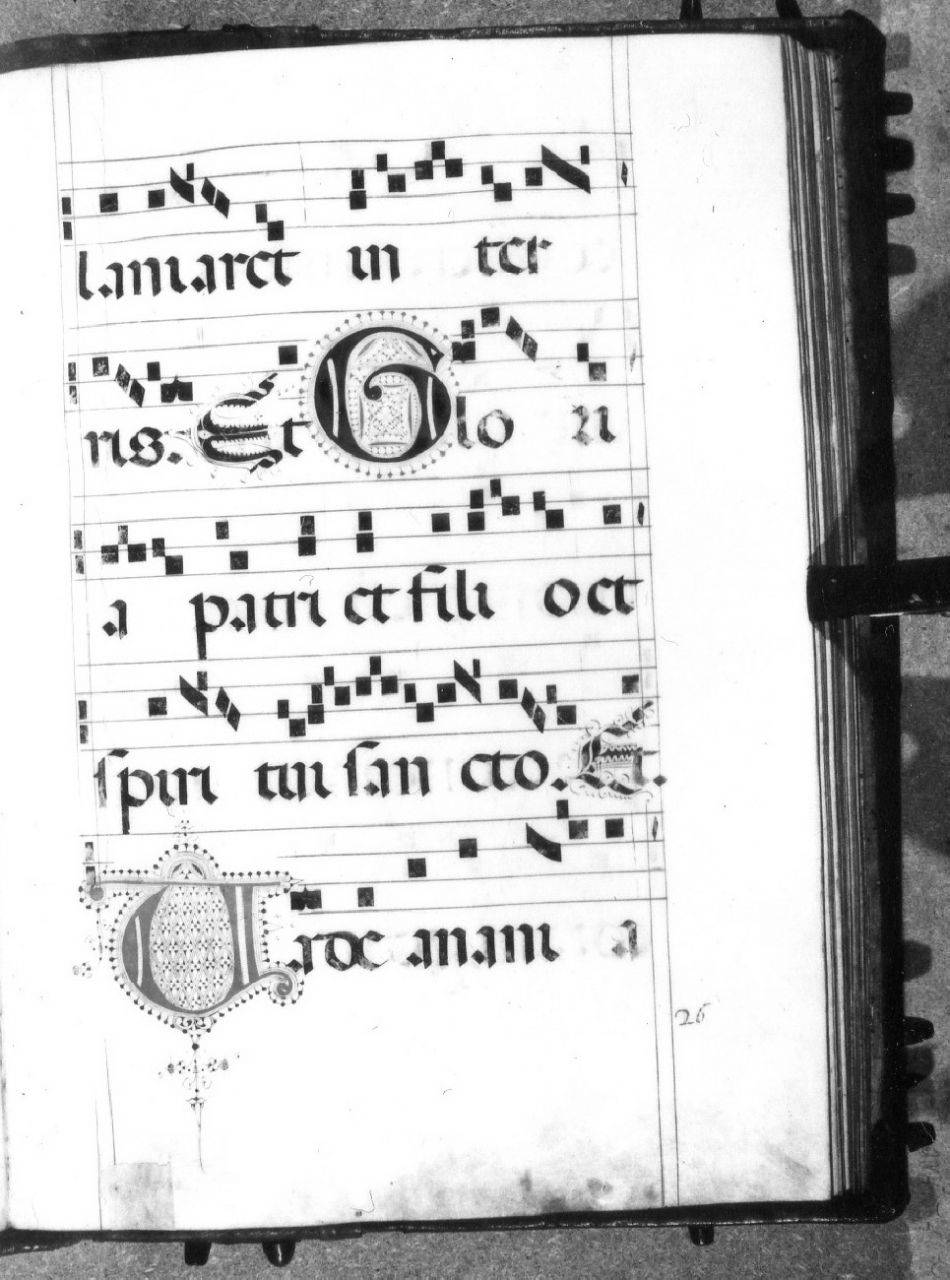 laniaret in ter
ris. Et Glo ri
a patri et fili o et
spiri tui san cto. Et.
Tarde anani a
26